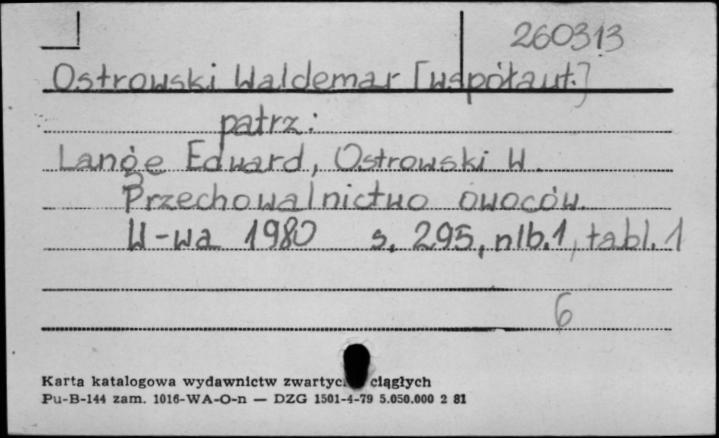 260313
Ostrowski Waldemar [współaut.]
patrz:
Lange Edward, Ostrowski W.
Przechowalnictwo owoców.
W-wa 1980 s. 295, nlb. 1, tabl. 1
6
Karta katalogowa wydawnictw ciągłych
Pu-B-144 zam. 1016-WA-O-n — DZG 1501-4-79 5.050.000 2 81